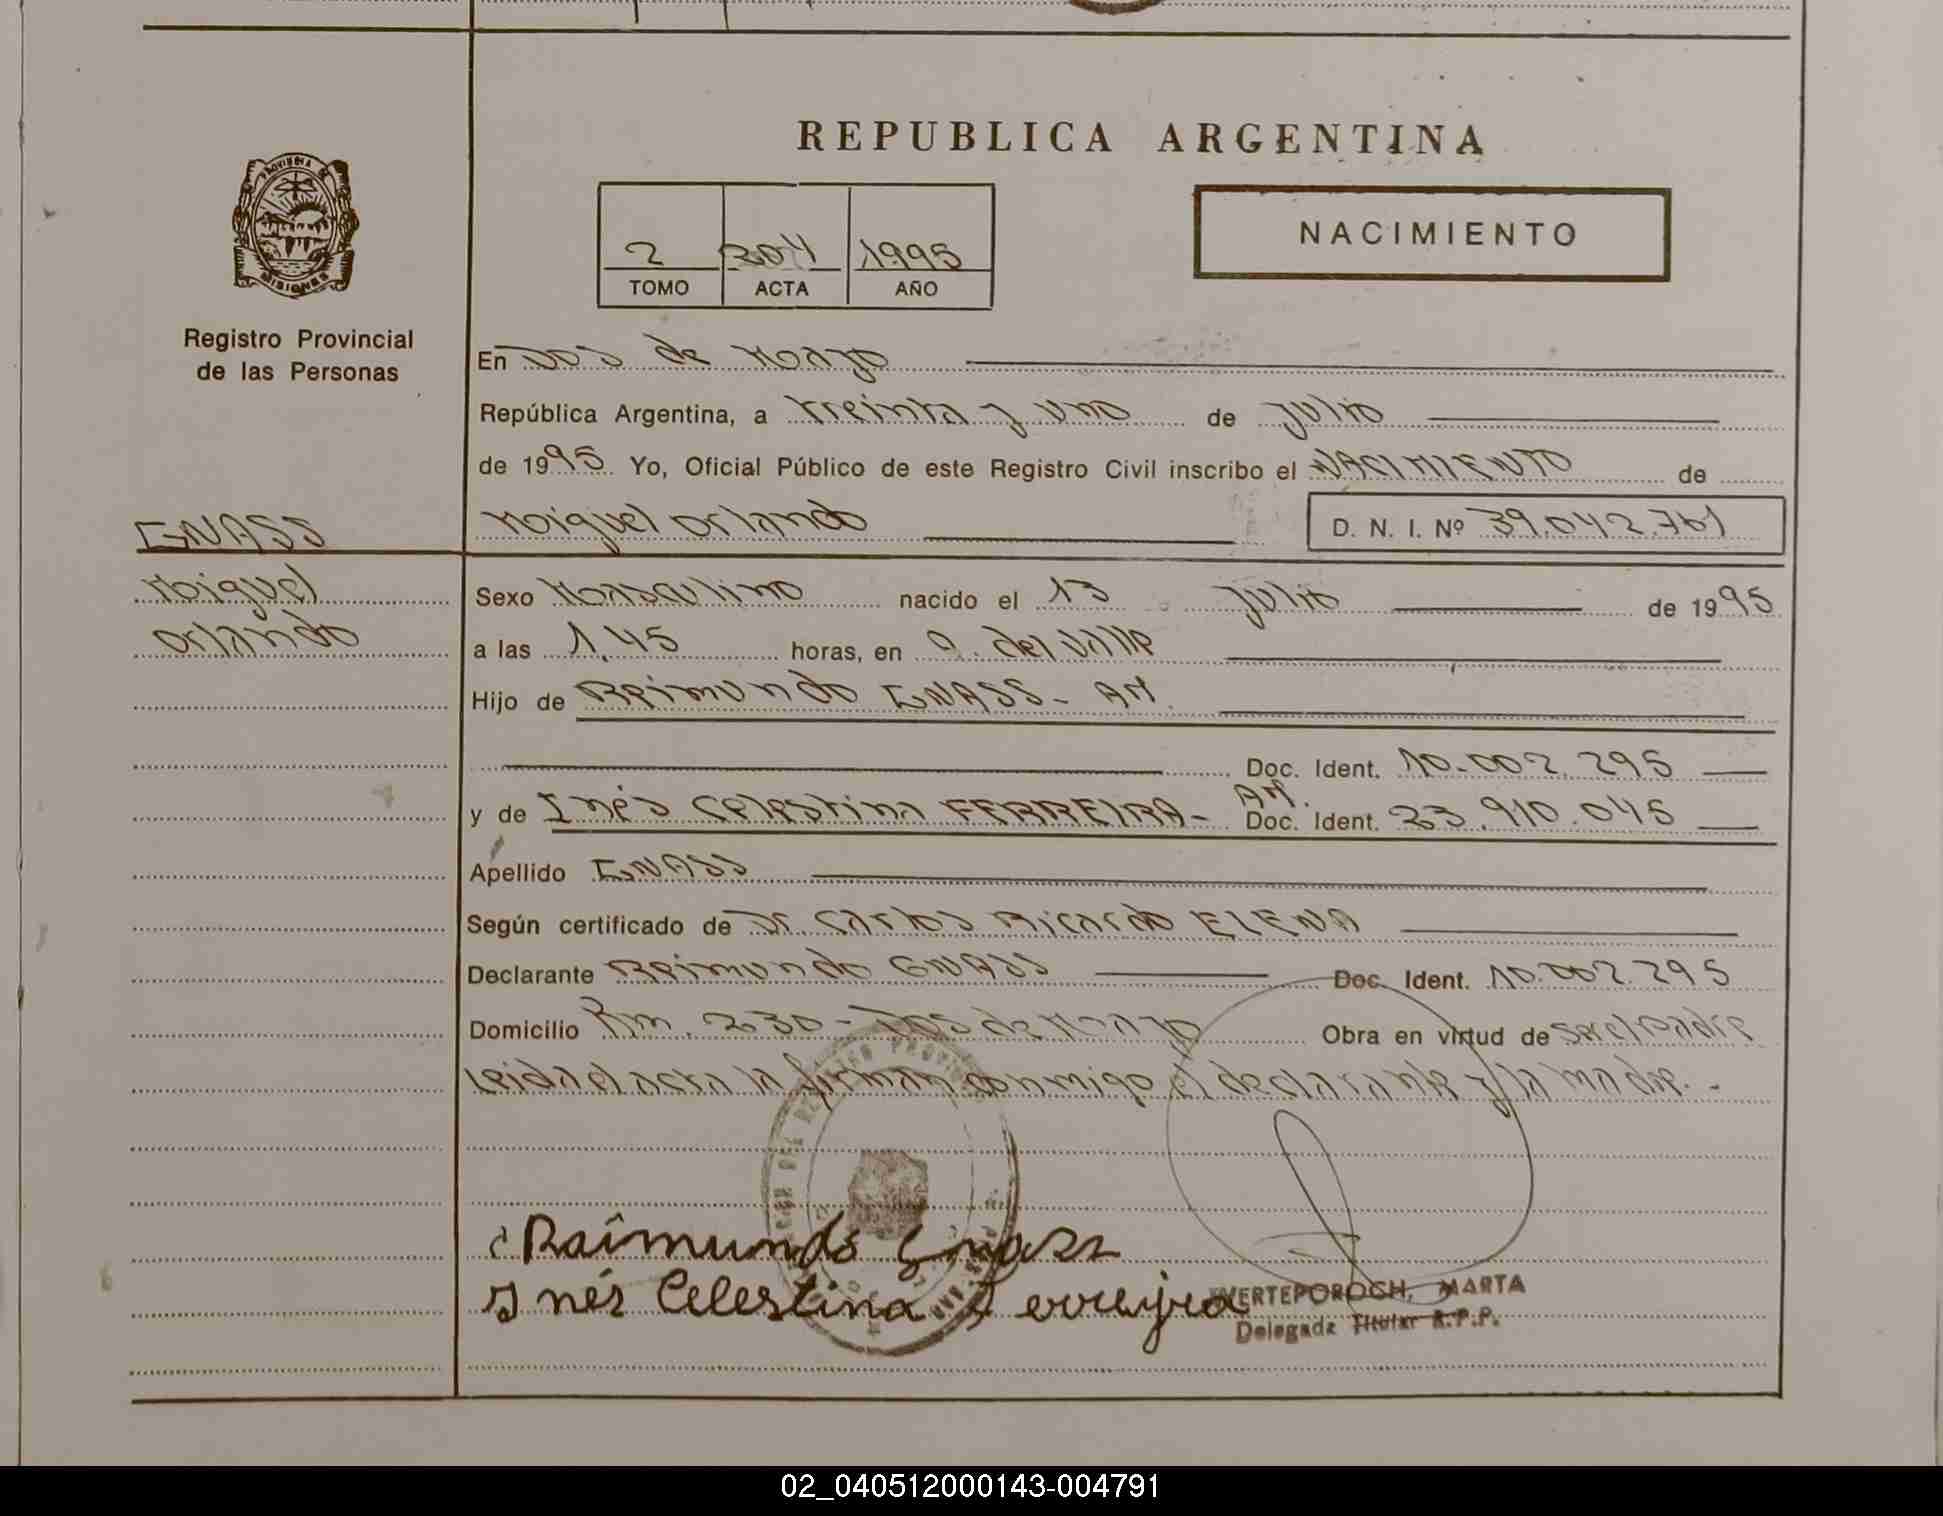 REPUBLICA ARGENTINA
PROVINCIA DE
MISIONES
2 204 1995
TOMO ACTA AÑO
NACIMIENTO
Registro Provincial
de las Personas
En Dos de Mayo
República Argentina, a treinta y uno de julio
de 1995 Yo, Oficial Público de este Registro Civil inscribo el NACIMIENTO de
GNASS
Miguel
Orlando
Miguel Orlando D. N. I. Nº 39.042.761
Sexo Masculino nacido el 13 julio de 1995
a las 1,45 horas, en A. del Valle
Hijo de Reimundo GNASS - AR.
Doc. Ident. 10.002.295
y de Inés Celestina FERREIRA - AR. Doc. Ident. 23.910.045
Apellido GNASS
Según certificado de Dr. Carlos Ricardo ELENA
Declarante Reimundo GNASS Doc. Ident. 10.002.295
Domicilio Km. 230 - Dos de Mayo Obra en virtud de ser el padre
Leida el acta la firman conmigo el declarante y la madre.-
Raimundo Gnass
Inés Celestina Ferreyra
WERTEPOROCH, MARTA
Delegada Titular R.P.P.
02_040512000143-004791